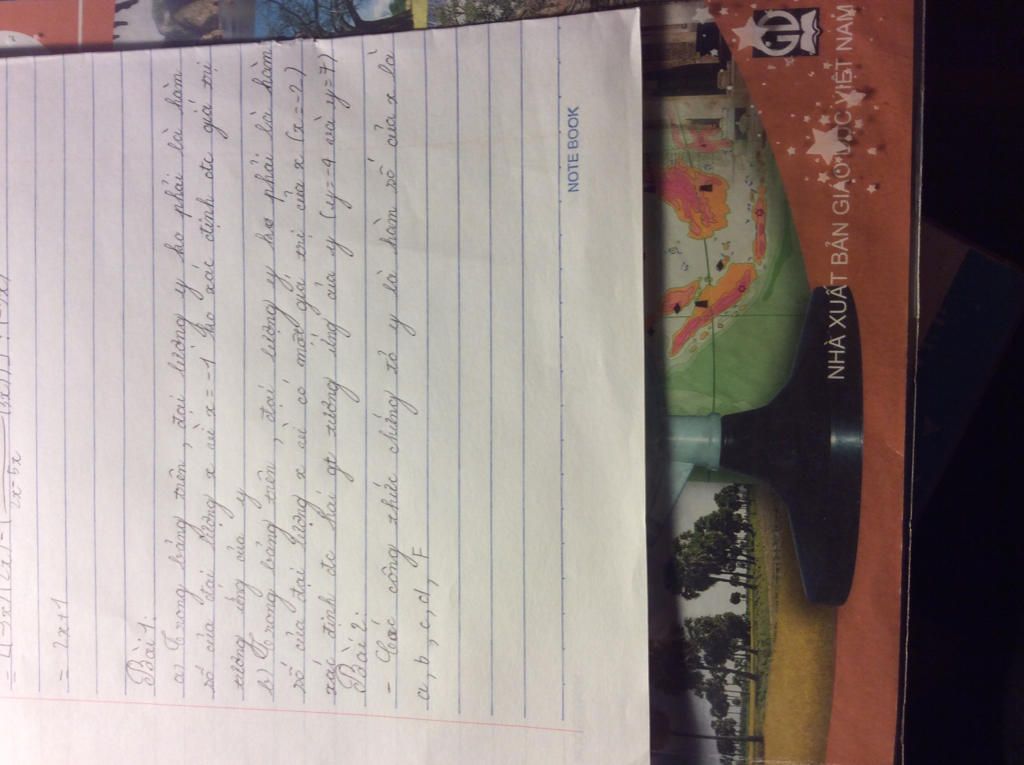 = 2x+1
Bài 1:
a) Trong bảng trên, đại lượng y ko phải là hàm
số của đại lượng x vì x = -1 ko xác định đc giá trị
tương ứng của y
b) Trong bảng trên, đại lượng y ko phải là hàm
số của đại lượng x vì có một giá trị của x (x = -2)
xác định đc hai gt tương ứng của y (y = -4 và y = 7)
Bài 2:
- Các công thức chứng tỏ y là hàm số của x là
a, b, c, d, F
NOTE BOOK
NHÀ XUẤT BẢN GIÁO DỤC VIỆT NAM